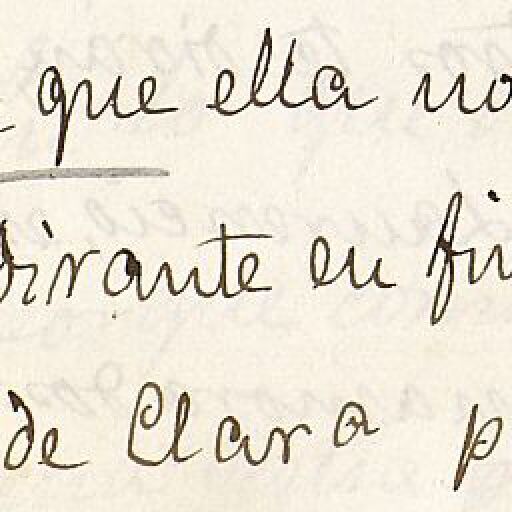 que ella no
Dirante en fin
de Clara p